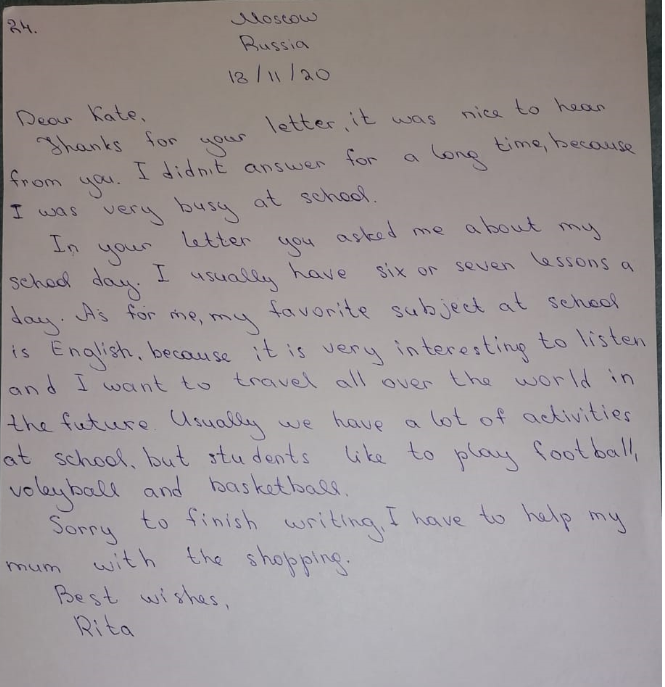 24.
Moscow
Russia
18/11/20
Dear Kate,
Thanks for your letter, it was nice to hear
from you. I didn't answer for a long time, because
I was very busy at school.
In your letter you asked me about my
school day. I usually have six or seven lessons a
day. As for me, my favorite subject at school
is English, because it is very interesting to listen
and I want to travel all over the world in
the future. Usually we have a lot of activities
at school, but students like to play football,
voleyball and basketball.
Sorry to finish writing, I have to help my
mum with the shopping.
Best wishes,
Rita